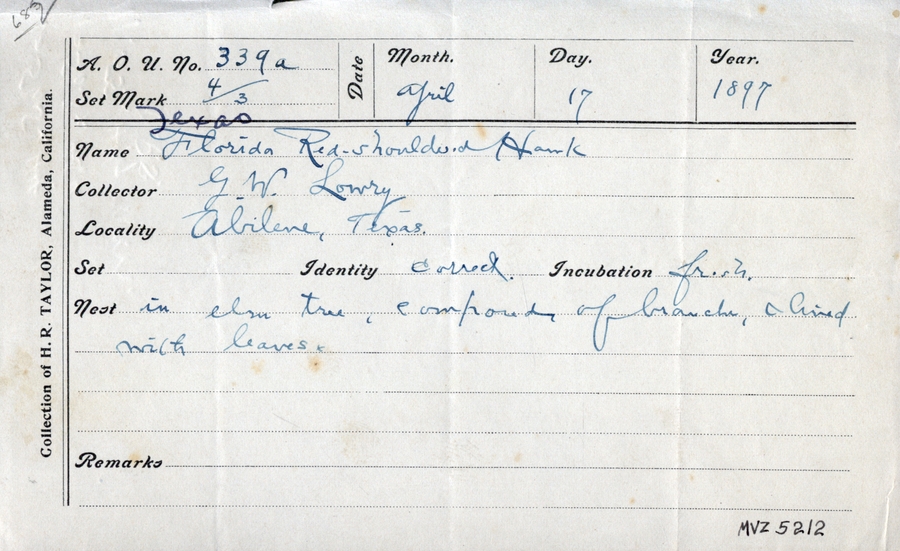 A. O. U. No. 339a
Set Mark 4/3
Date
Month.
April
Day.
17
Year.
1897
Texas
Name Florida Red-shouldered Hawk
Collector G. W. Lowry
Locality Abilene, Texas.
Set Identity correct. Incubation fresh.
Nest in elm tree, composed of branches, & lined
with leaves.
Remarks
Collection of H. R. TAYLOR, Alameda, California.
MVZ 5212